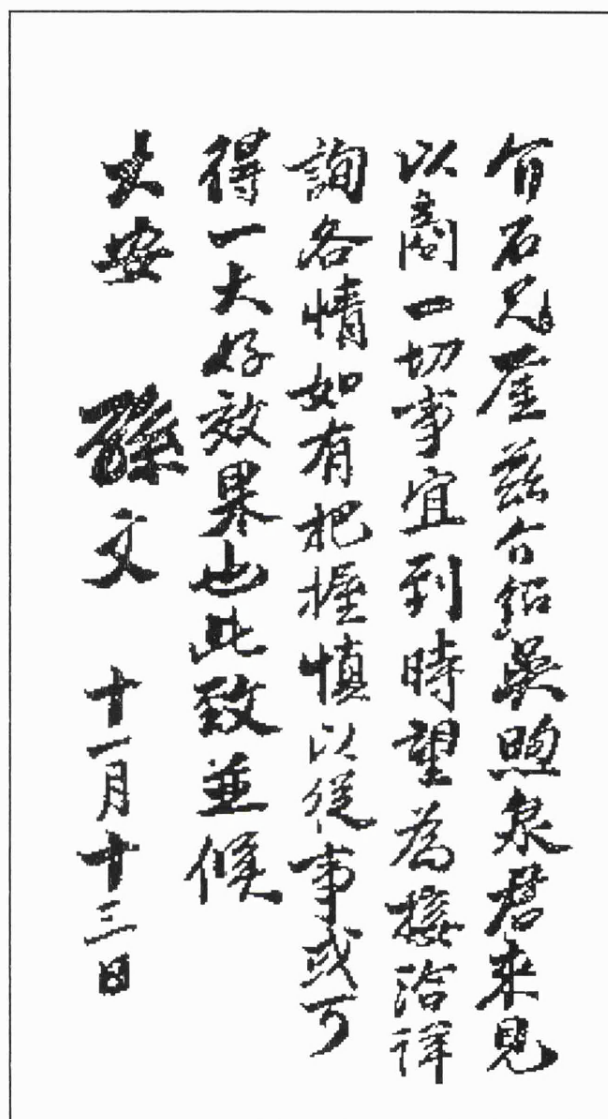 介石兄鑒茲介紹吳煦泉君來見
以商一切事宜到時望為接洽詳
詢各情如有把握慎以從事或可
得一大好效果也此致並候
大安 孫文 十一月十三日